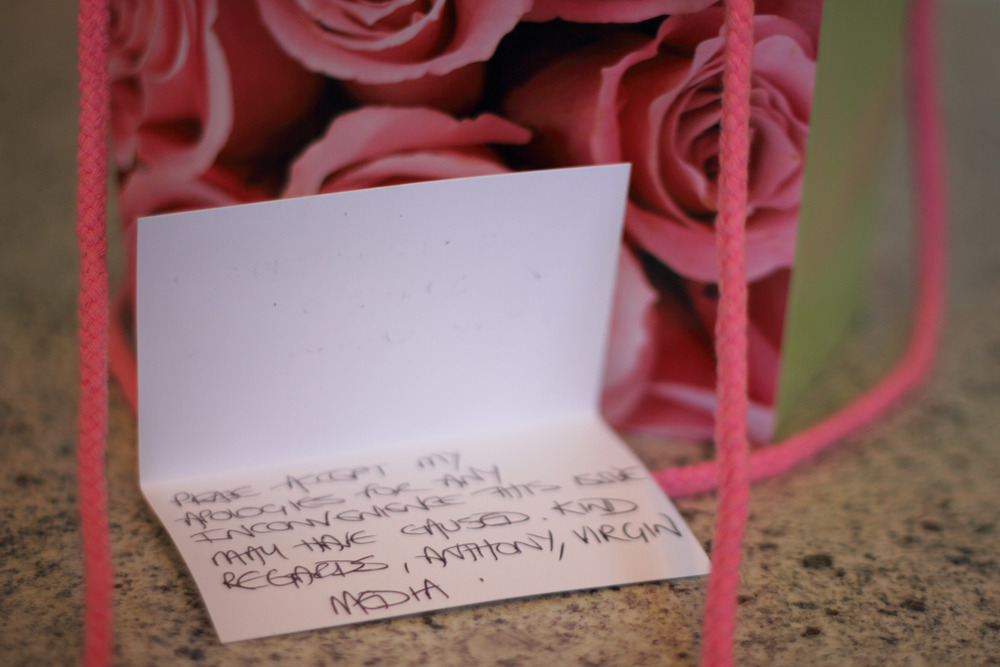 PLEASE ACCEPT MY
APOLOGIES FOR ANY
INCONVENIENCE THIS ISSUE
MAY HAVE CAUSED. KIND
REGARDS, ANTHONY, VIRGIN
MEDIA.